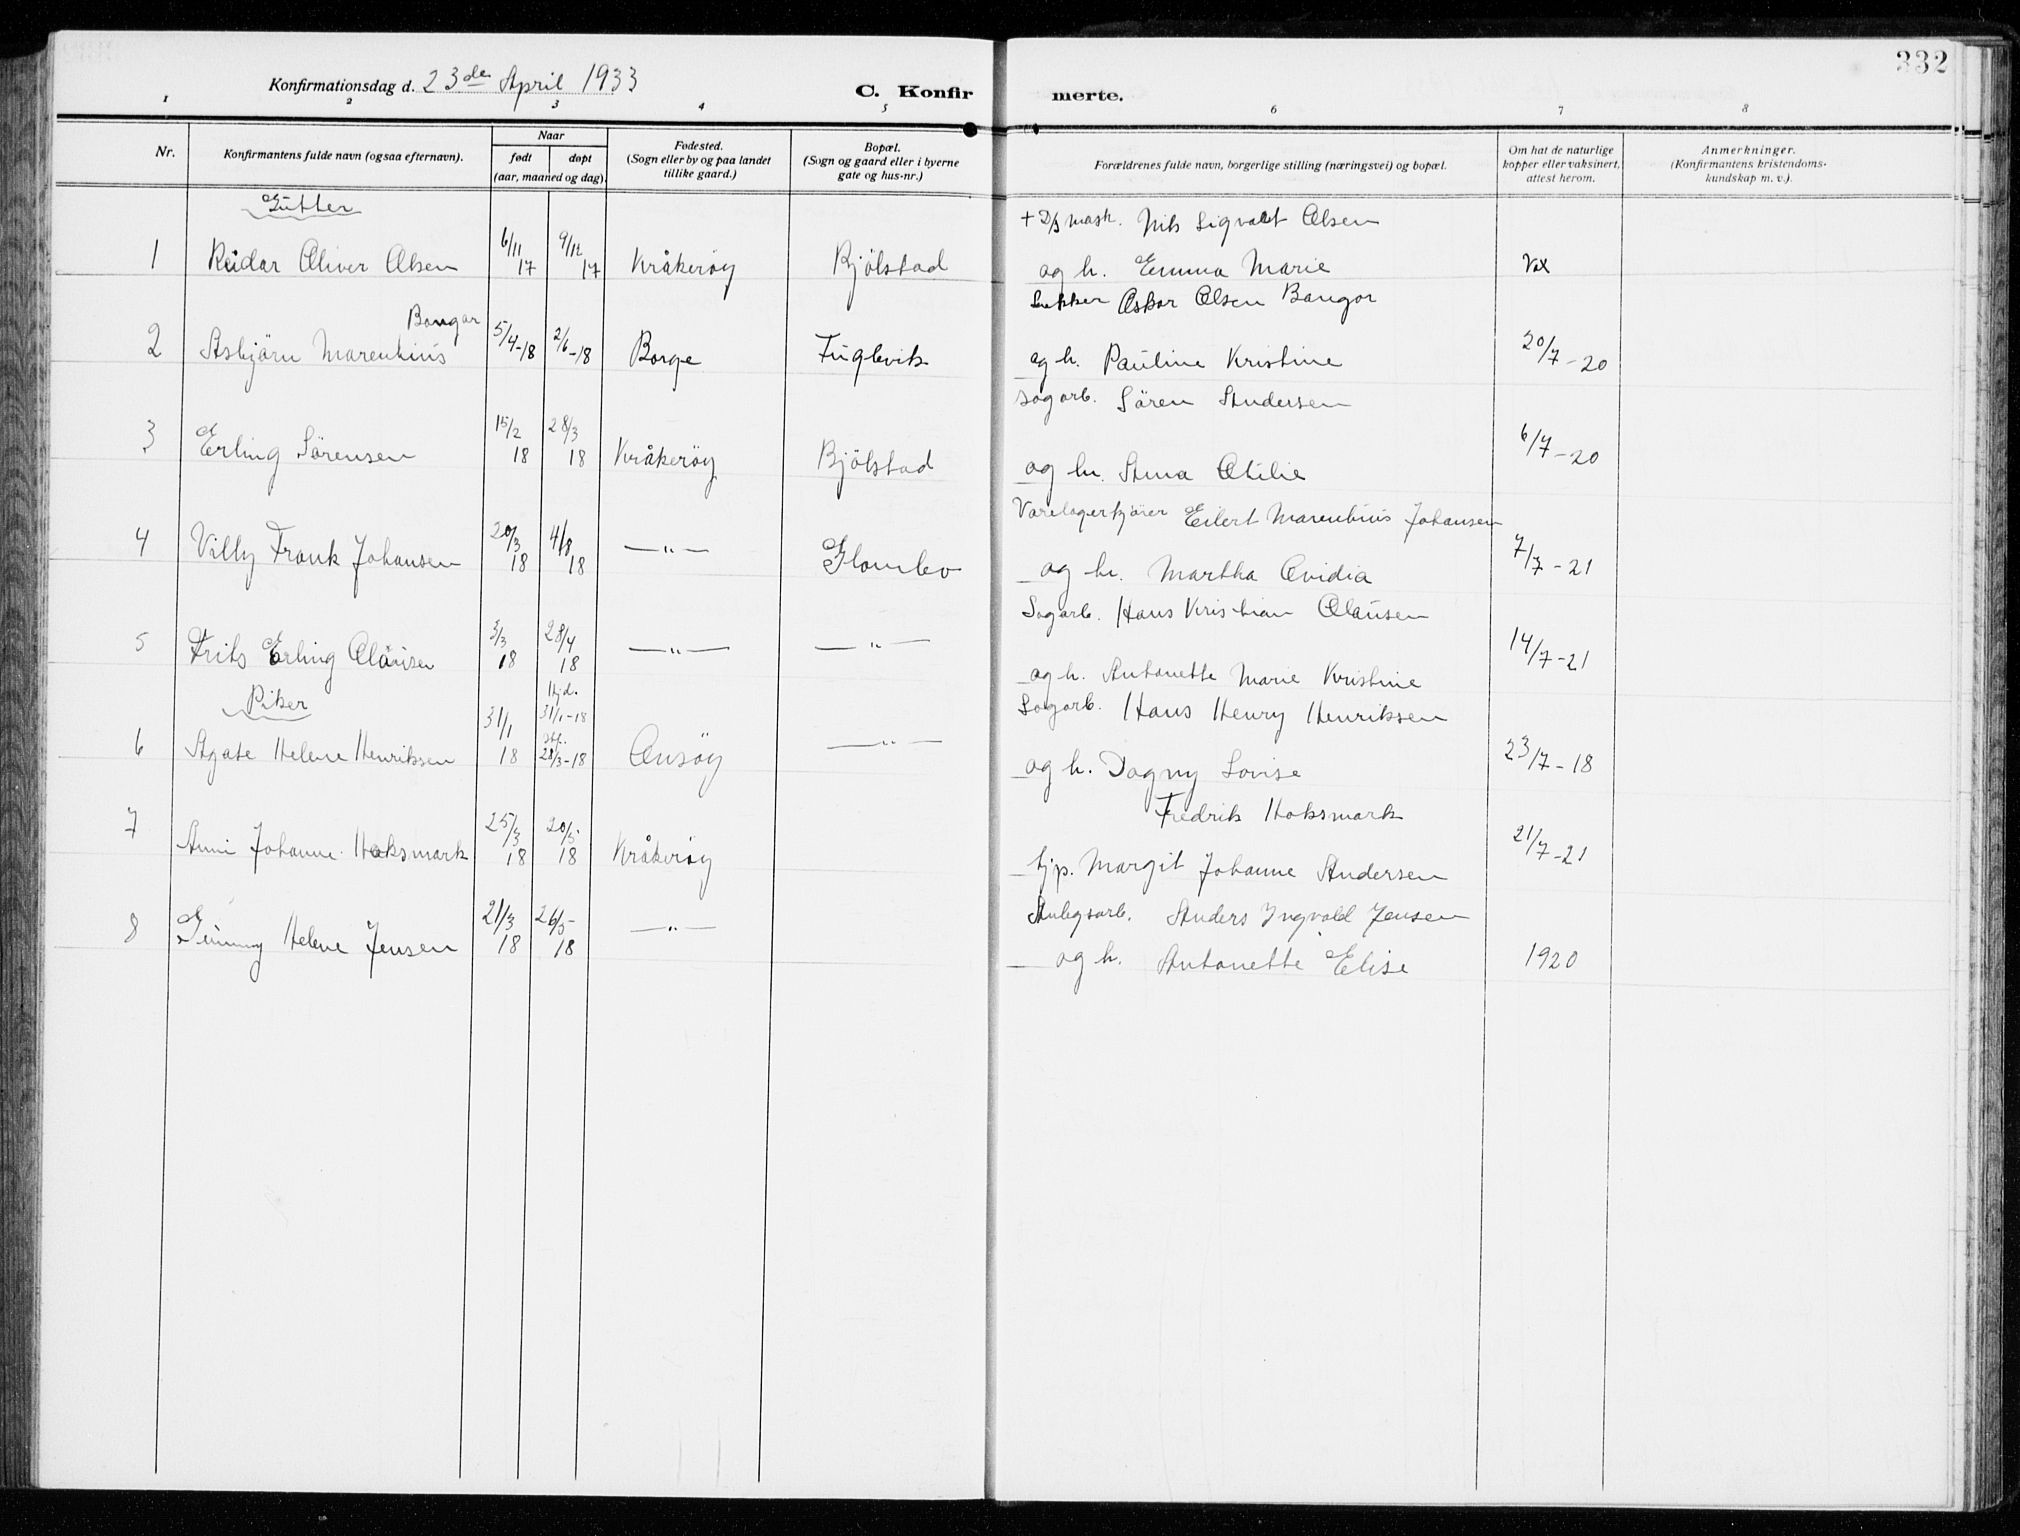 332
Konfirmationsdag d. 23de April 1933
C. Konfirmerte.
1 2 3 4 5 6 7 8
Nr.
Konfirmantens fulde navn (ogsaa efternavn).
Naar
født døpt
(aar, maaned og dag).
Fødested.
(Sogn eller by og paa landet
tillike gaard.)
Bopæl.
(Sogn og gaard eller i byerne
gate og hus-nr.)
Forældrenes fulde navn, borgerlige stilling (næringsvei) og bopæl.
Om hat de naturlige
kopper eller vaksinert,
attest herom.
Anmerkninger.
(Konfirmantens kristendoms-
kundskap m. v.).
Gutter
+ D/s mask. Nils Sigvalt Olsen
1 Reidar Oliver Olsen 6/11 17 9/12 17 Kråkerøy Bjölstad og h. Emma Marie Vax
Oskar Olsen Bangor
Bangor
2 Asbjörn Marenhius 5/4-18 2/6-18 Borge Fuglevik og h. Pauline Kristine 20/7-20
Sagarb. Sören Andersen
3 Erling Sörensen 15/2 18 28/3 18 Kråkerøy Bjölstad og h. Anna Otilie 6/7-20
Varelagerkjörer Eilert Marenhius Johansen
4 Villy Frank Johansen 20/3 18 4/8 18 —"— Glombo og h. Martha Ovidia 7/7-21
Sagarb. Hans Kristian Olausen
5 Frits Erling Olausen 3/3 18 28/4 18 —"— —"— og h. Antonette Marie Kristine 14/7-21
Piker
Sagarb. Hans Henry Henriksen
6 Agate Helene Henriksen 31/1 18 hjd. 31/1-18 stf. 28/3-18 Onsöy —"— og h. Dagny Lovise 23/7-18
Fredrik Haksmark
7 Anni Johanne Haksmark 25/3 18 20/5 18 Kråkerøy tjp. Margit Johanne Andersen 21/7-21
Anlegsarb. Anders Ingvald Jensen
8 Gunny Helene Jensen 21/3 18 26/5- 18 —"— og h. Antonette Elise 1920